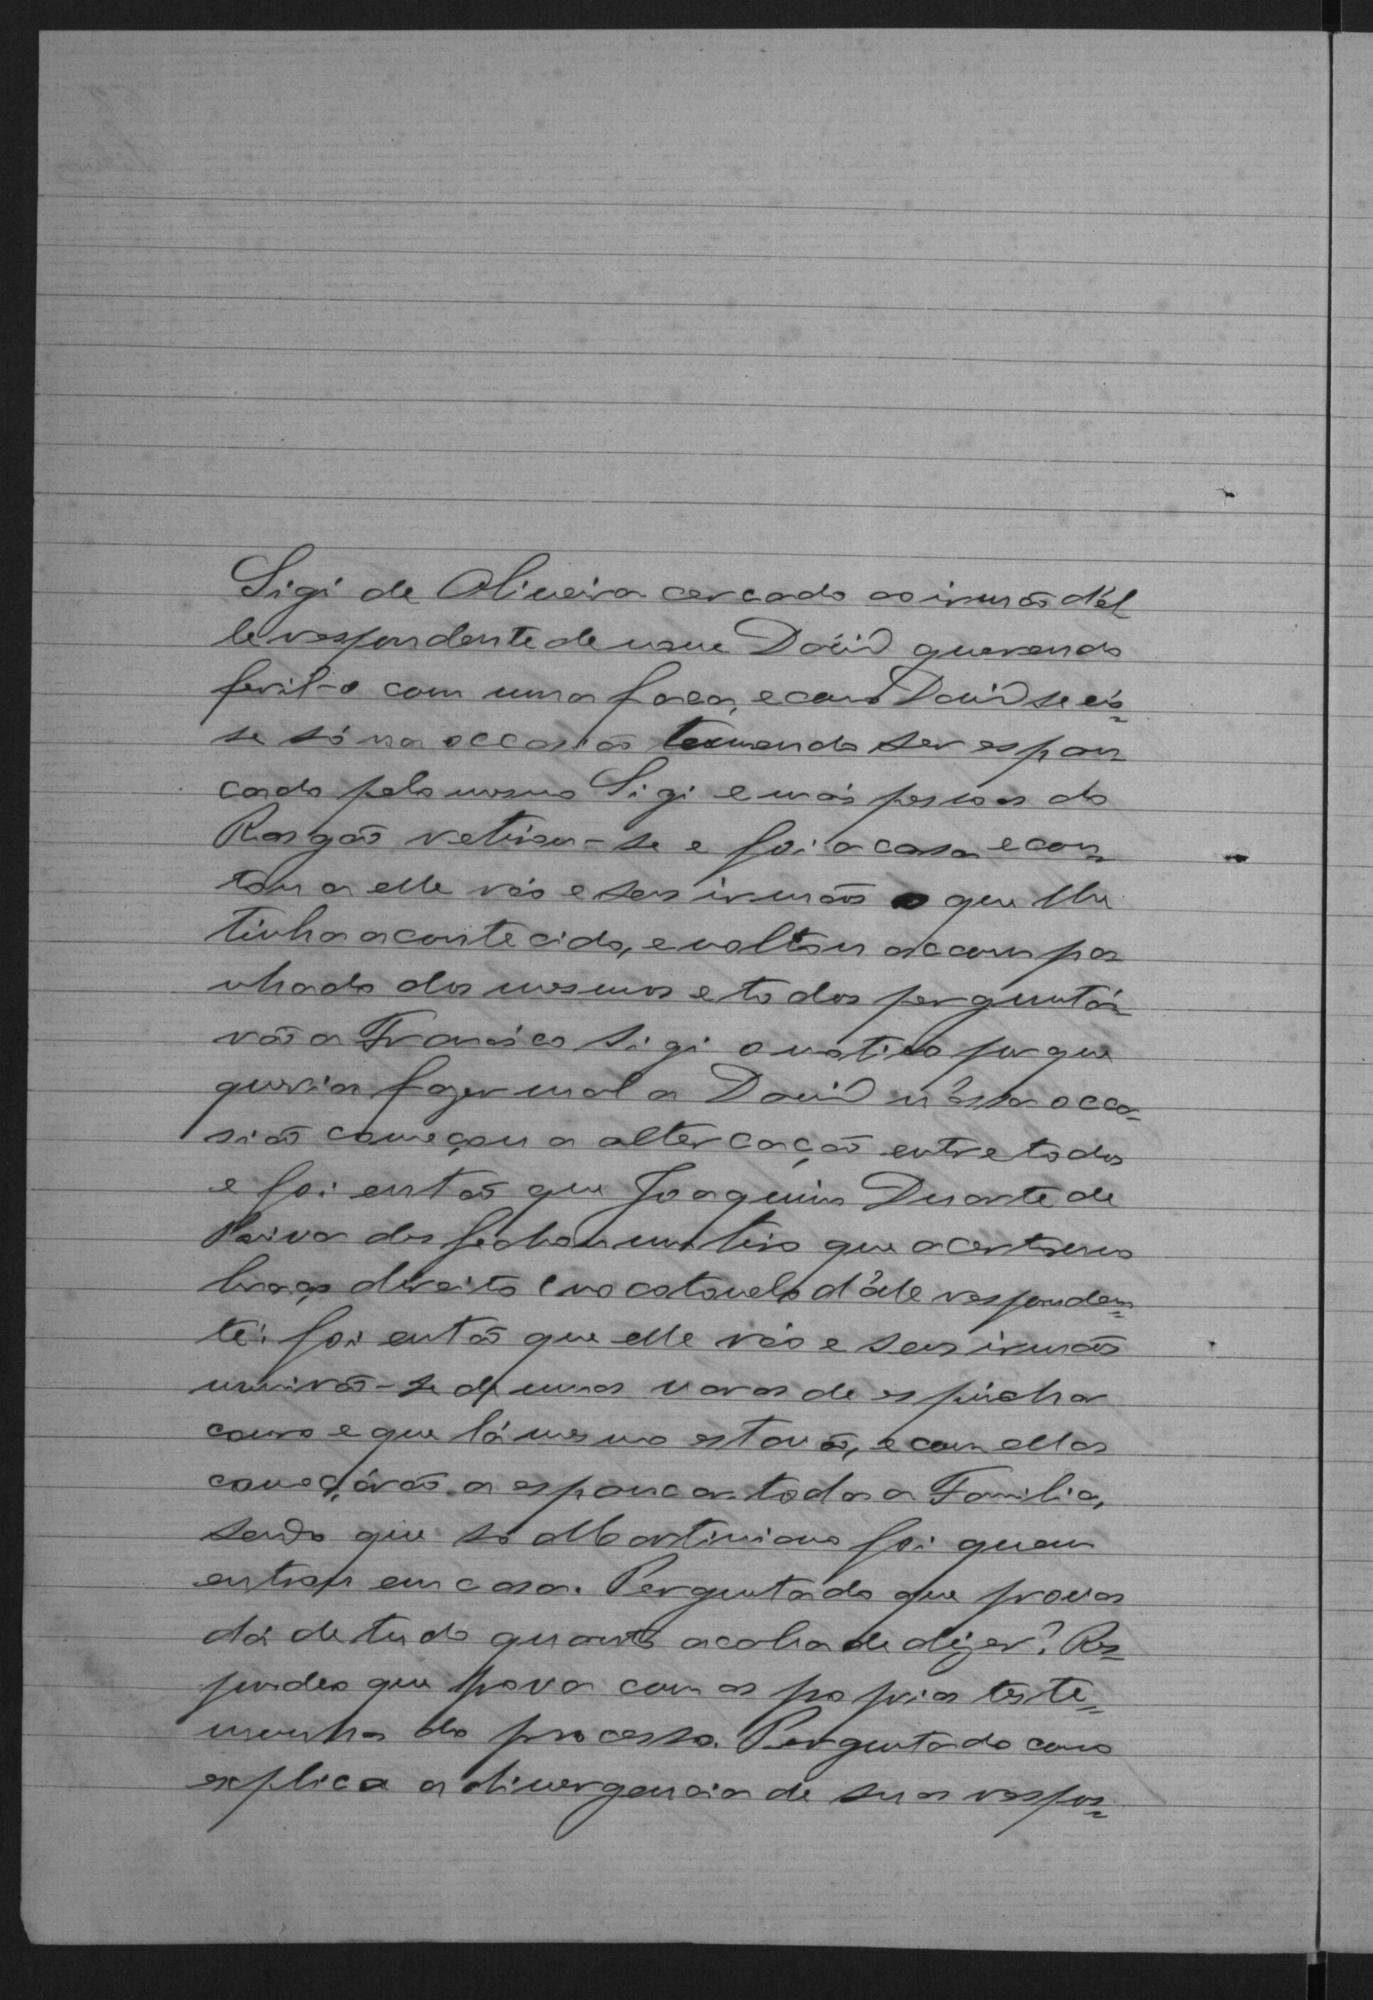 Sigi de Oliveira cercado ao irmão d'el
le respondente de nome David querendo
feril-o com uma faca, e como David se vis=
se só na occasião temendo ser espan
cado pelo mesmo Sigi e mais pessoas do
Rasgão retirou-se e foi a casa e con=
tou a elle réo e seus irmãos o que lhe
tinha acontecido, e voltou accompa
nhado dos mesmos e todos perguntá=
rão a Francisco Sigi o motivo porque
queria fazer mal a David n'essa occa=
sião começou a altercação entre todos
e foi então que Joaquim Duarte de
Paiva desfechou um tiro que acertou no
braço direito (no cotovelo d'elle responden=
te: foi então que elle réo e seus irmãos
munirão-se de umas varas de espichar
couro e que lá mesmo estavão, e com ellas
começárão a espancar toda a Familia,
sendo que só Martiniano foi quem
entrou em casa. Perguntado que provas
dá de tudo quanto acaba de dizer? Res=
pondeo que prova com as proprias teste=
munhas do processo. Perguntado como
explica a divergencia de suas respos=